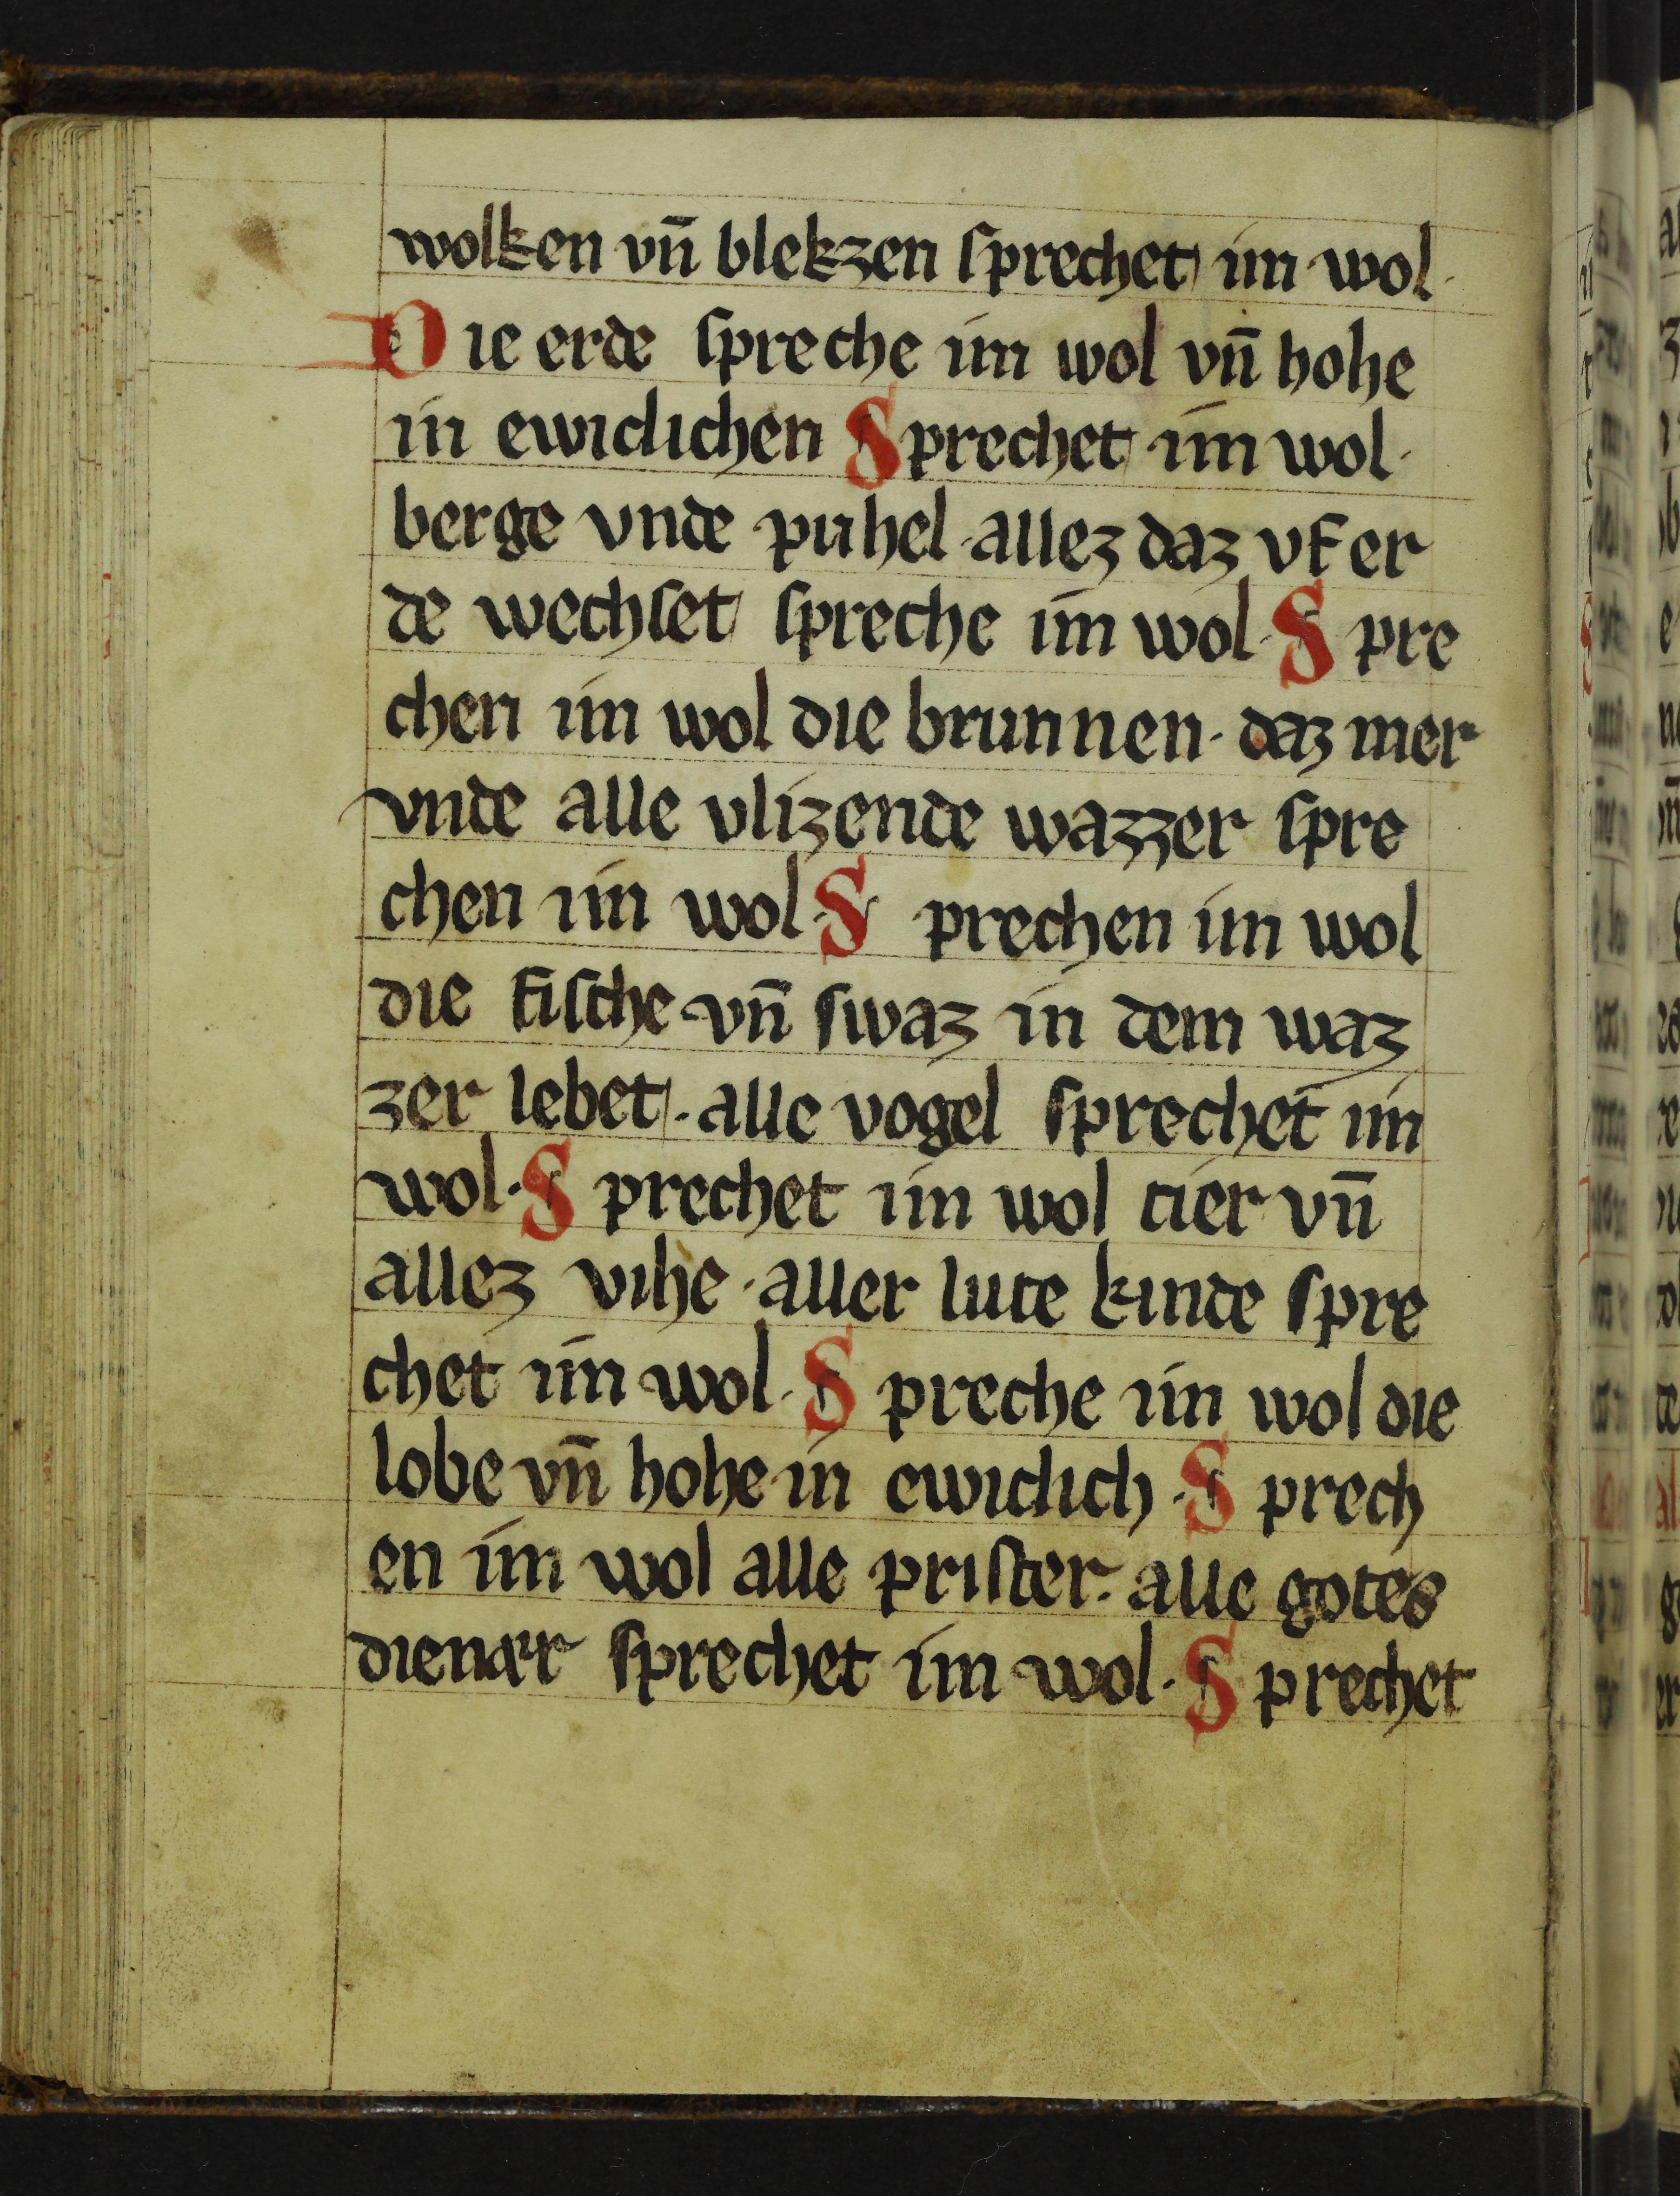 wolken vn̄ blekzen ſprechet im wol·
Die erde ſpreche im wol vn̄ hohe
in ewiclichen Sprechet im wol·
berge vnde puhel·allez daz vf er
de wechſet ſpreche im wol·Spre
chen im wol die brunnen·daz mer
vnde alle vlizende wazzer ſpre
chen im wol·Sprechen im wol
die fiſche vn̄ ſwaz in dem waz
zer lebet·alle vogel ſprechet im
wol·Sprechet im wol tier vn̄
allez vihe·aller lute kinde ſpre
chet im wol·Spreche im wol die
lobe vn̄ hohe in ewiclich·Sprech
en im wol alle priſter·alle gotes
dienær ſprechet im wol·Sprechet